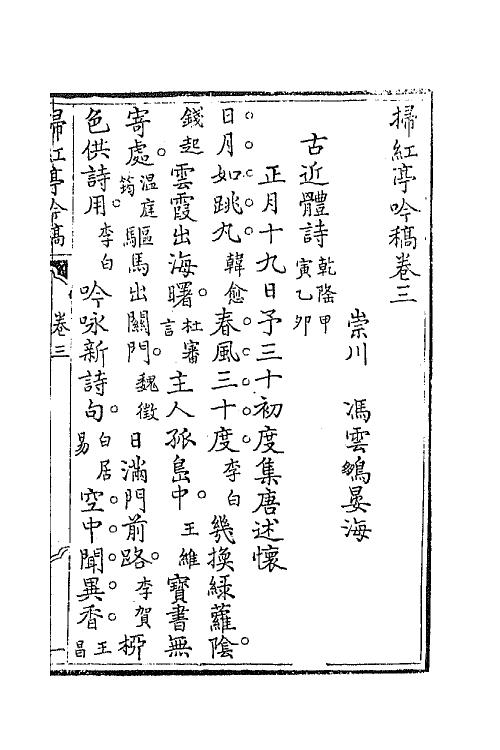 掃紅亭吟稿卷三
崇川　馮雲鵷晏海
古近體詩乾隆甲寅乙卯
正月十九日予三十初度集唐述懷
日月如跳丸韓愈春風三十度李白幾換綠蘿陰
錢起雲霞出海曙杜審言主人孤島中王維寶書無
寄處溫庭筠驅馬出關門魏徵日滿門前路李賀柳
色供詩用李白吟咏新詩句白居易空中聞異香王昌
掃紅亭吟稿　卷三　一